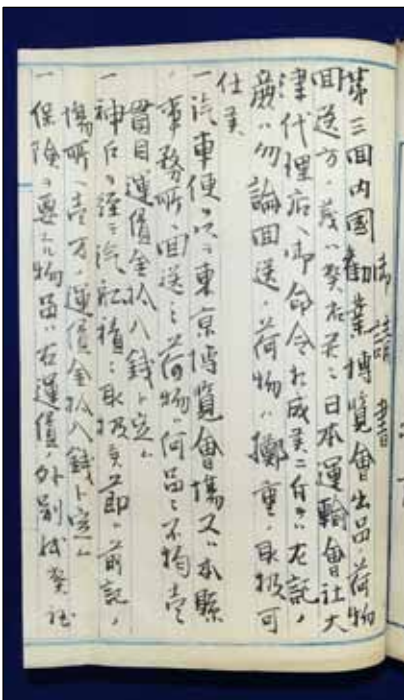 御請書
第三回内國勧業博覧會出品ノ荷物
回送方ノ義ハ日本運輸會社大
津代理店ヘ御命令相成候ニ付テハ左記ノ
廉ハ勿論回送ノ荷物ハ擲重ニ取扱可
仕候
一汽車便ニテ東京博覧會場又ハ本縣
事務所ヘ回送スル荷物ハ何品ニ不拘壱
貫目運賃金拾八錢ト定ム
一神戸ヲ経テ汽舩積ニ取扱候節ハ前記ノ
場所ヘ壱才ノ運賃金拾八錢ト定ム
一保険ヲ要スル物品ハ右運賃ノ外別段